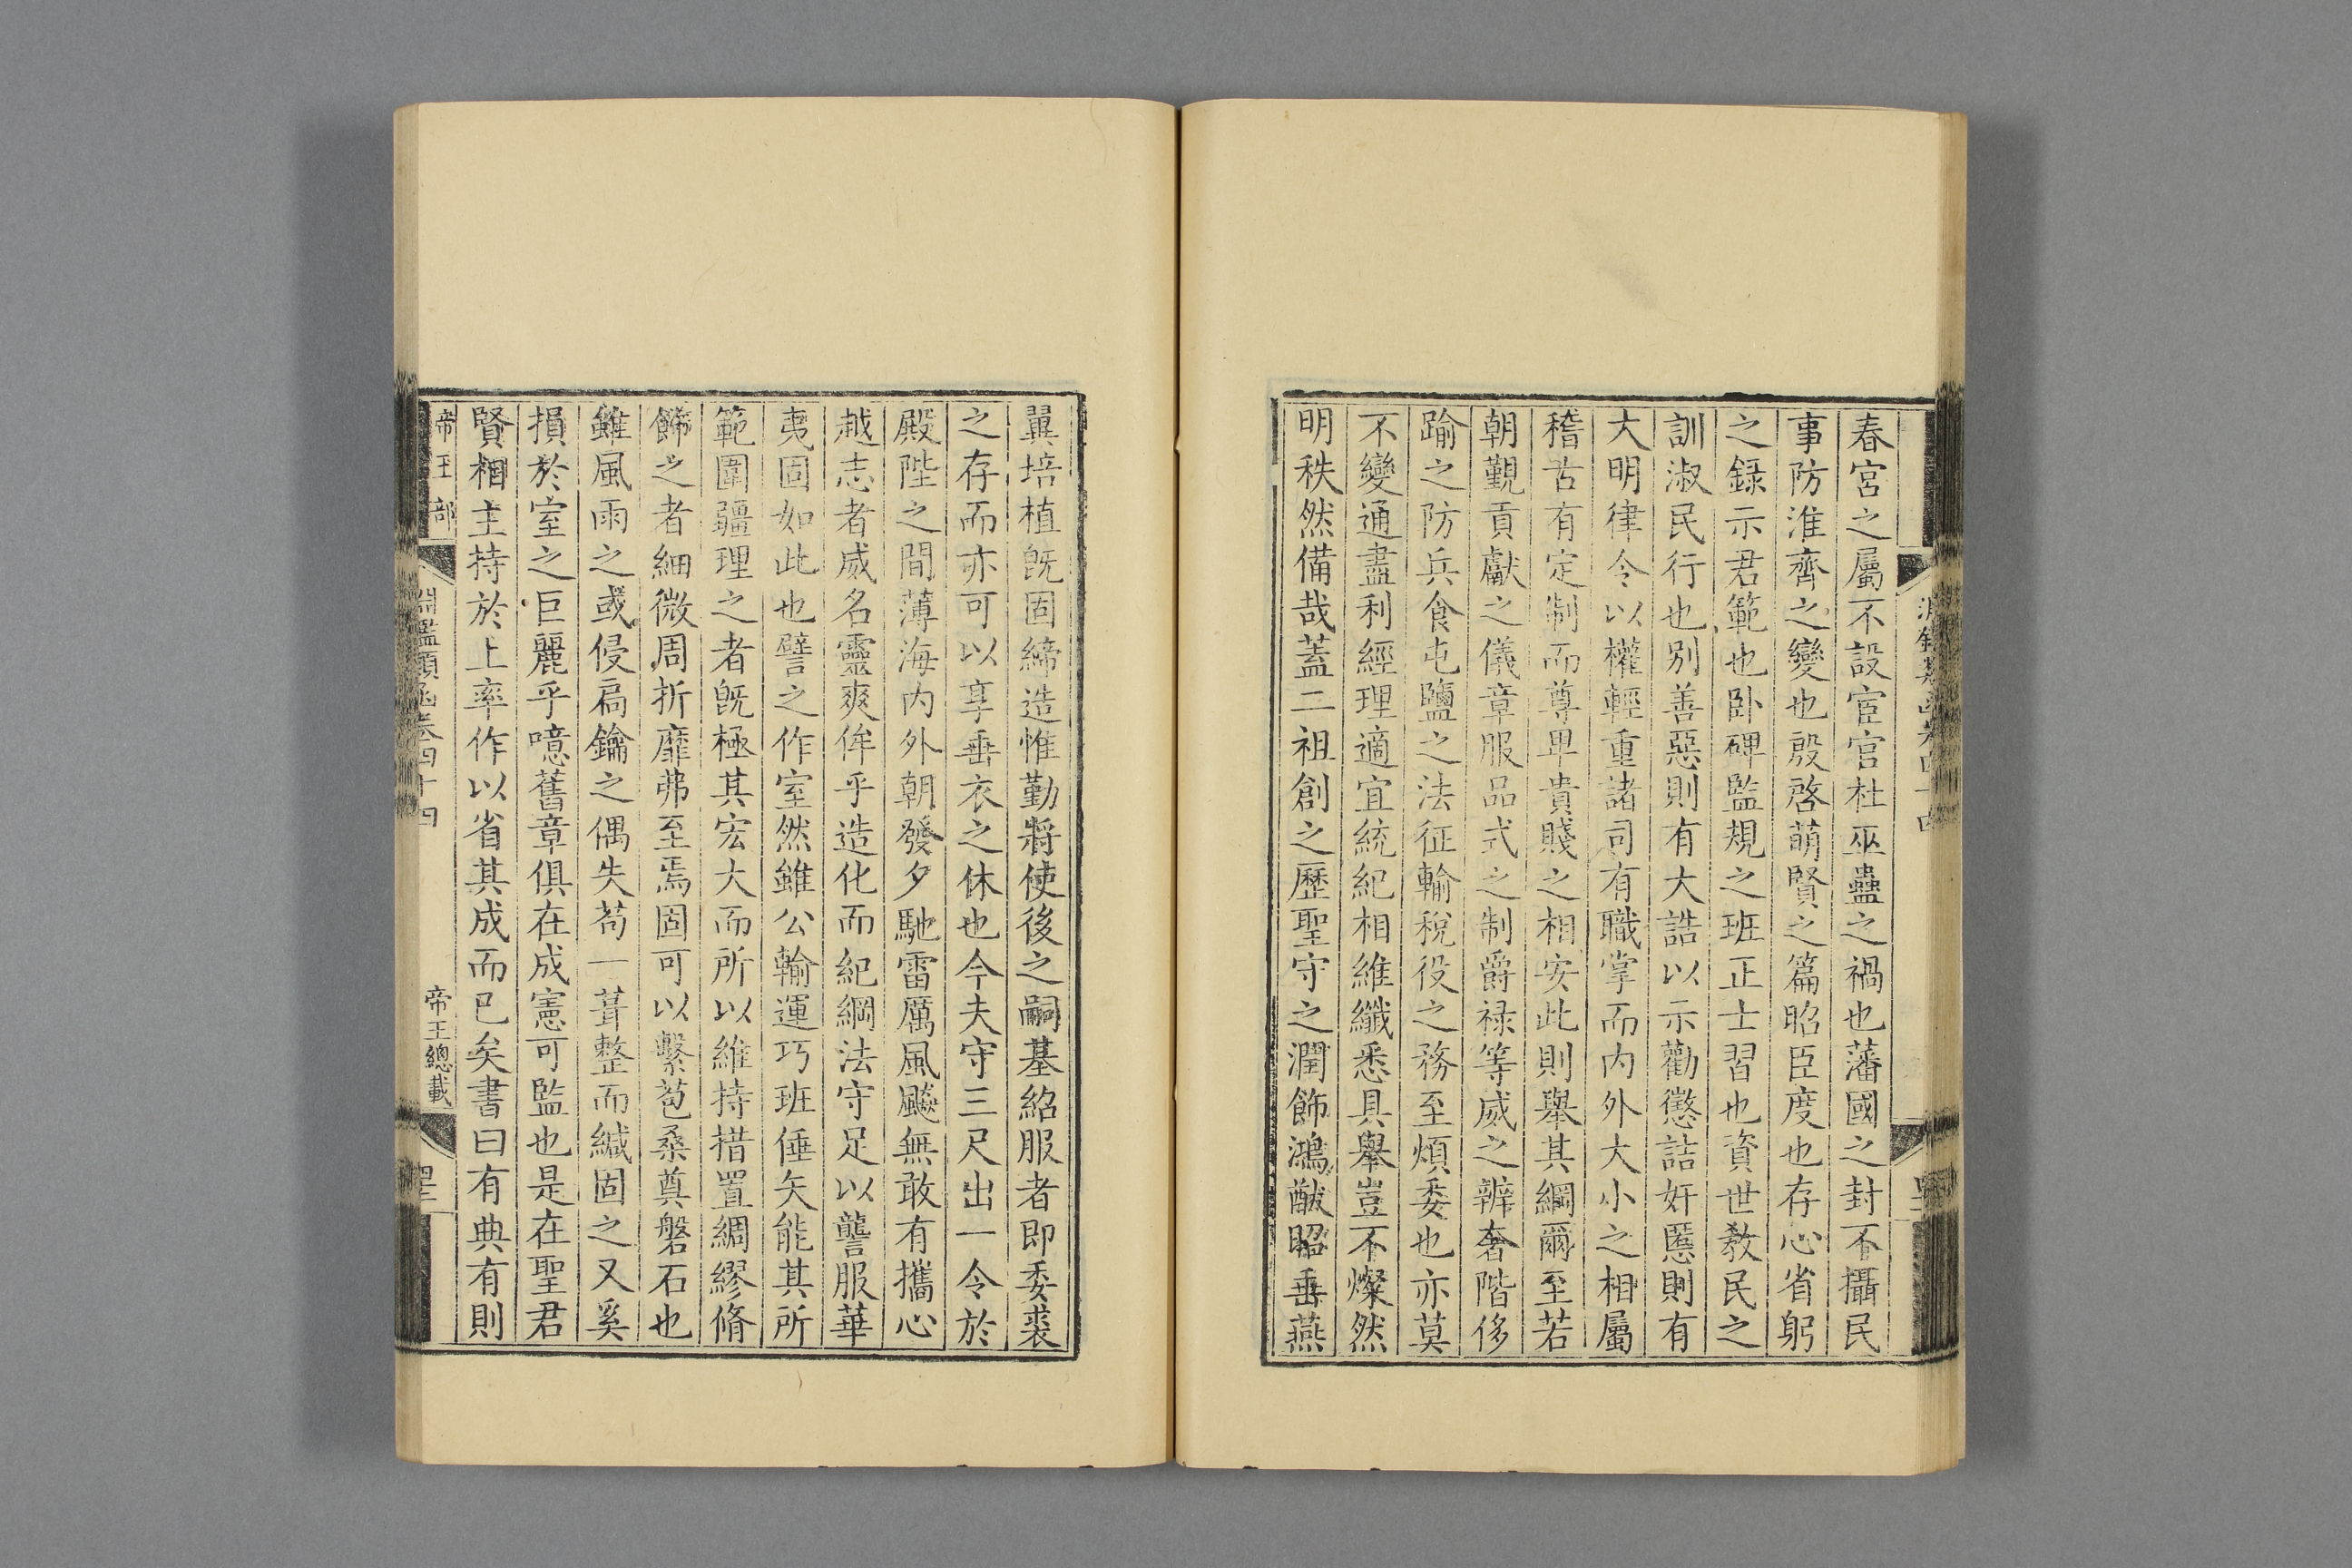 春宮之屬不設宦官杜巫蠱之禍也藩國之封不攝民
事防淮齊之變也殷啓萌賢之篇昭臣度也存心省躬
之錄示君範也卧碑監規之班正士習也資世敎民之
訓淑民行也別善惡則有大誥以示勸懲詰奸慝則有
大明律令以權輕重諸司有職掌而内外大小之相屬
稽古有定制而尊卑貴賤之相安此則舉其綱爾至若
朝覲貢獻之儀章服品式之制爵祿等威之辨奢階侈
踰之防兵食屯鹽之法征輸稅役之務至煩委也亦莫
不變通盡利經理適宜統紀相維纖悉具舉豈不燦然
明秩然備哉蓋二祖創之歷聖守之潤飾鴻猷昭垂燕
翼培植旣固締造惟勤將使後之嗣基紹服者即委裘
之存而亦可以享垂衣之休也今夫守三尺出一令於
殿陛之間薄海内外朝發夕馳雷厲風飈無敢有攜心
越志者威名靈爽侔乎造化而紀綱法守足以讋服華
夷固如此也譬之作室然雖公輸運巧班倕矢能其所
範圍疆理之者旣極其宏大而所以維持措置綢繆脩
飾之者細微周折靡弗至焉固可以繫苞桑奠磐石也
雖風雨之或侵扃鑰之偶失苟一葺整而緘固之又奚
損於室之巨麗乎噫舊章俱在成憲可監也是在聖君
賢相主持於上率作以省其成而已矣書曰有典有則
帝王部
淵鑑類函卷四十四
帝王總載